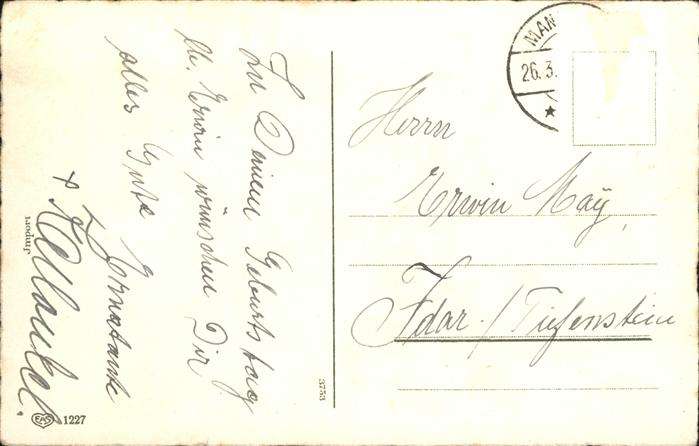 Zu Deinem Geburtstag
lb. Erwin wünschen Dir
alles Gute
+
Import
EAS 1227
3753
MAN
26.3.
Herrn
Erwin May,
Idar-/Tiefenstein